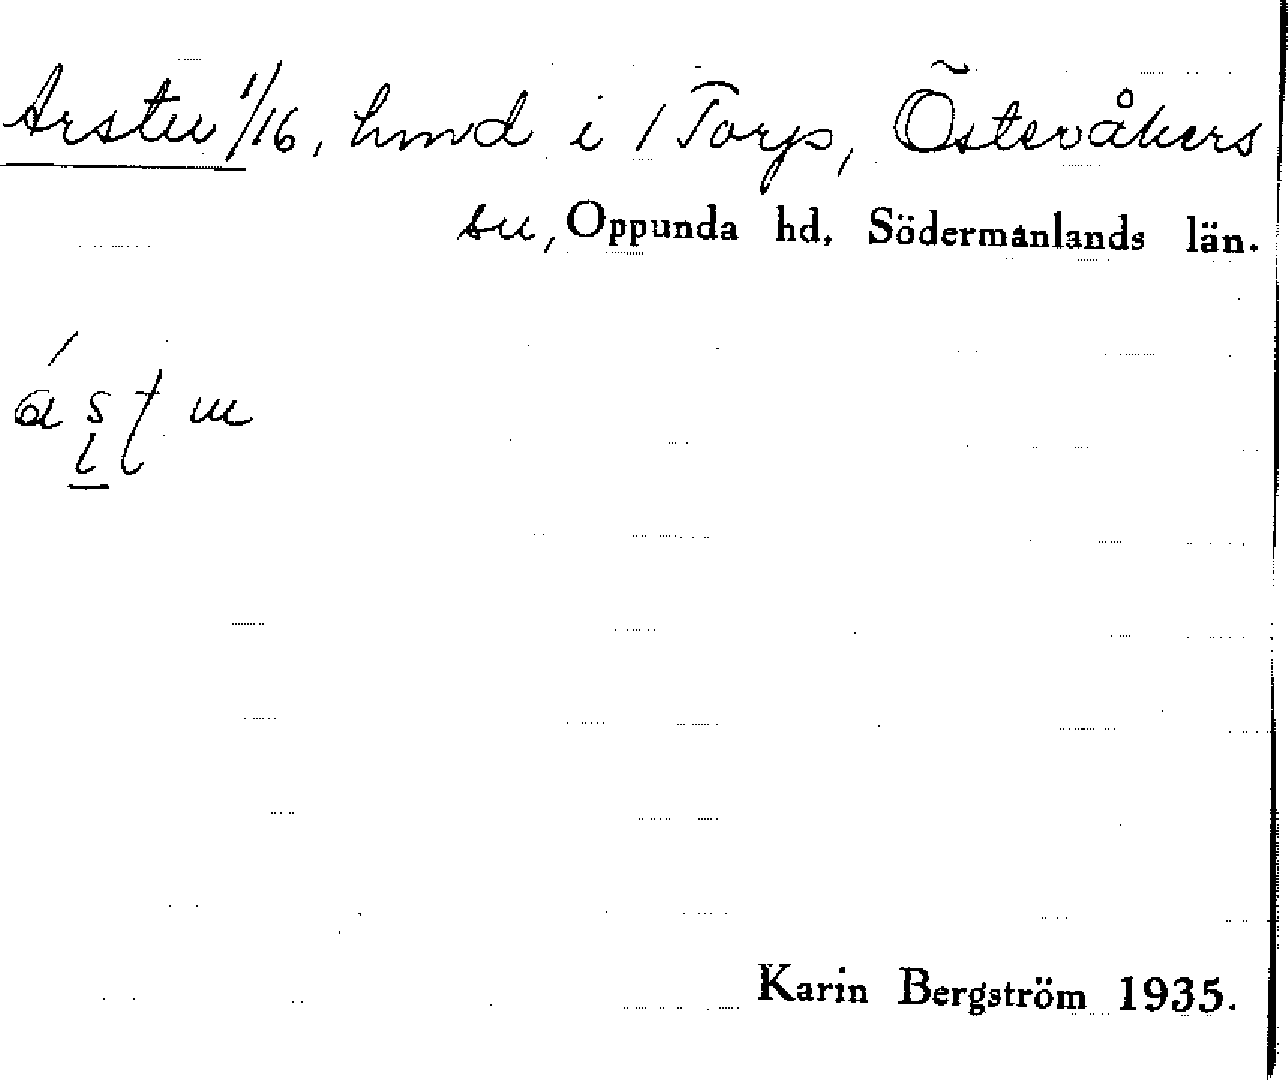 Arsta 1/16, hmd i 1 Torp, Österåkers
sn, Oppunda hd, Södermanlands län.
Karin Bergström 1935.